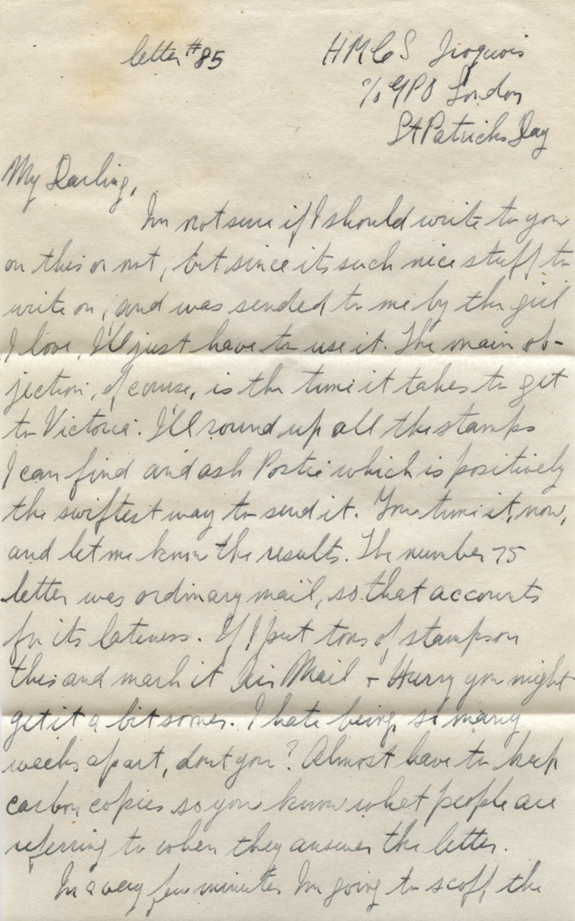 letter #85
HMCS Iroquois
% GPO London
St Patricks Day
My Darling,
Im not sure if I should write to you
on this or not, but since its such nice stuff to
write on, and was sended to me by the girl
I love, I'll just have to use it. The main ob-
jection, of course, is the time it takes to get
to Victoria. I'll round up all the stamps
I can find and ask Postie which is positively
the swiftest way to send it. You time it, now,
and let me know the results. The number 75
letter was ordinary mail, so that accounts
for its lateness. If I put tons of stamps on
this and mark it Air Mail + Hurry you might
get it a bit sooner. I hate being so many
weeks apart, dont you? Almost have to keep
carbon copies so you know what people are
referring to when they answer the letter.
In a very few minutes Im going to scoff the